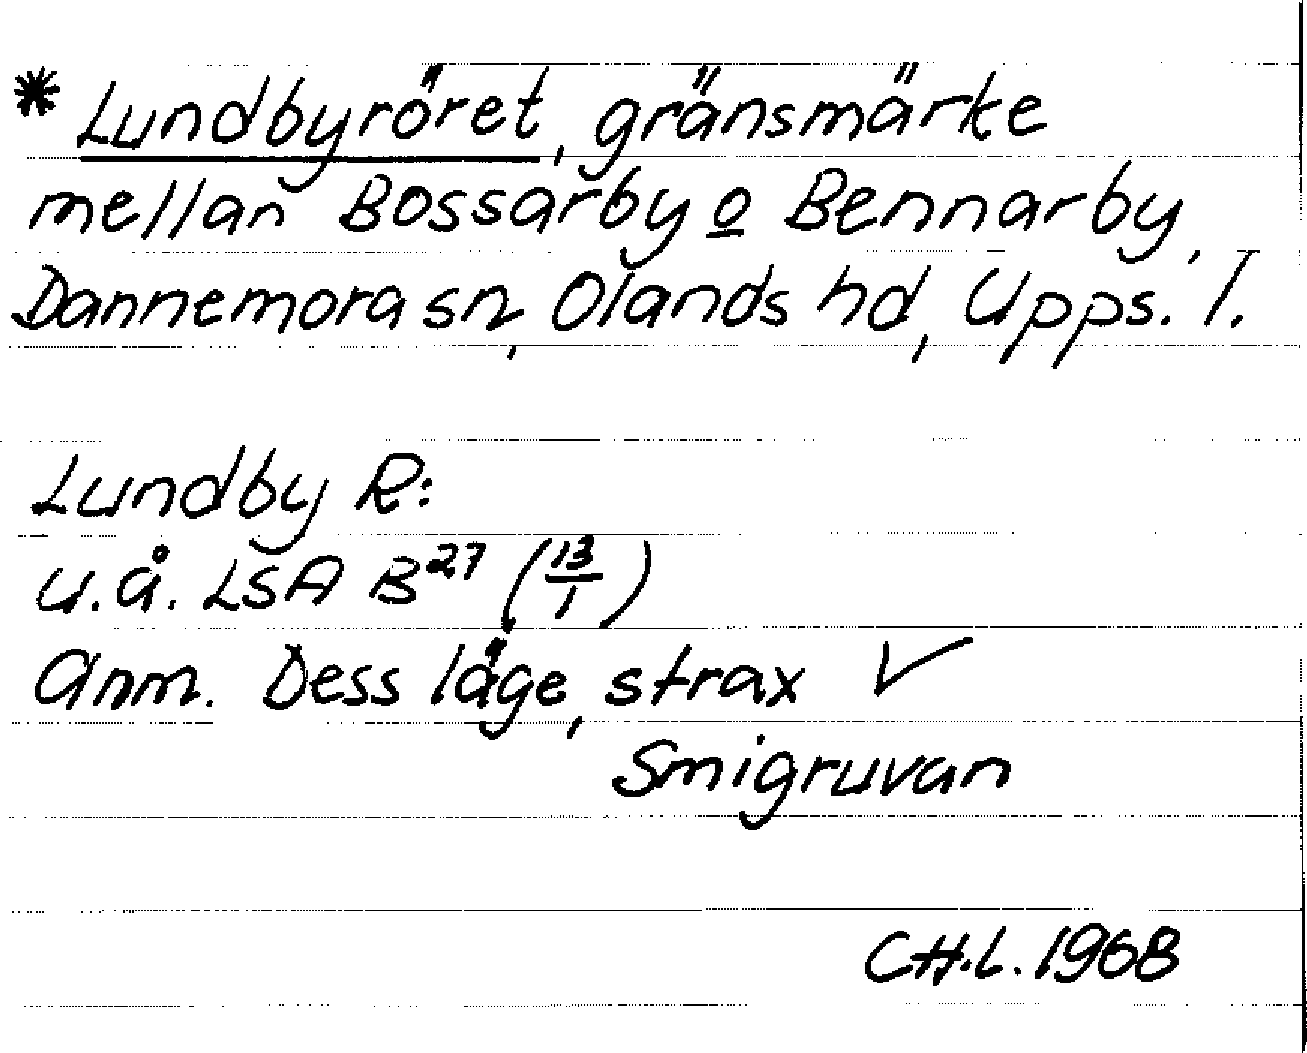 * Lundbyröret, gränsmärke
mellan Bossarby o Bennarby,
Dannemora sn, Olands hd, Upps. l.
Lundby R:
u.å. LSA B²⁷ (13/1)
Anm. Dess läge, strax V
Smigruvan
CH.L. 1968